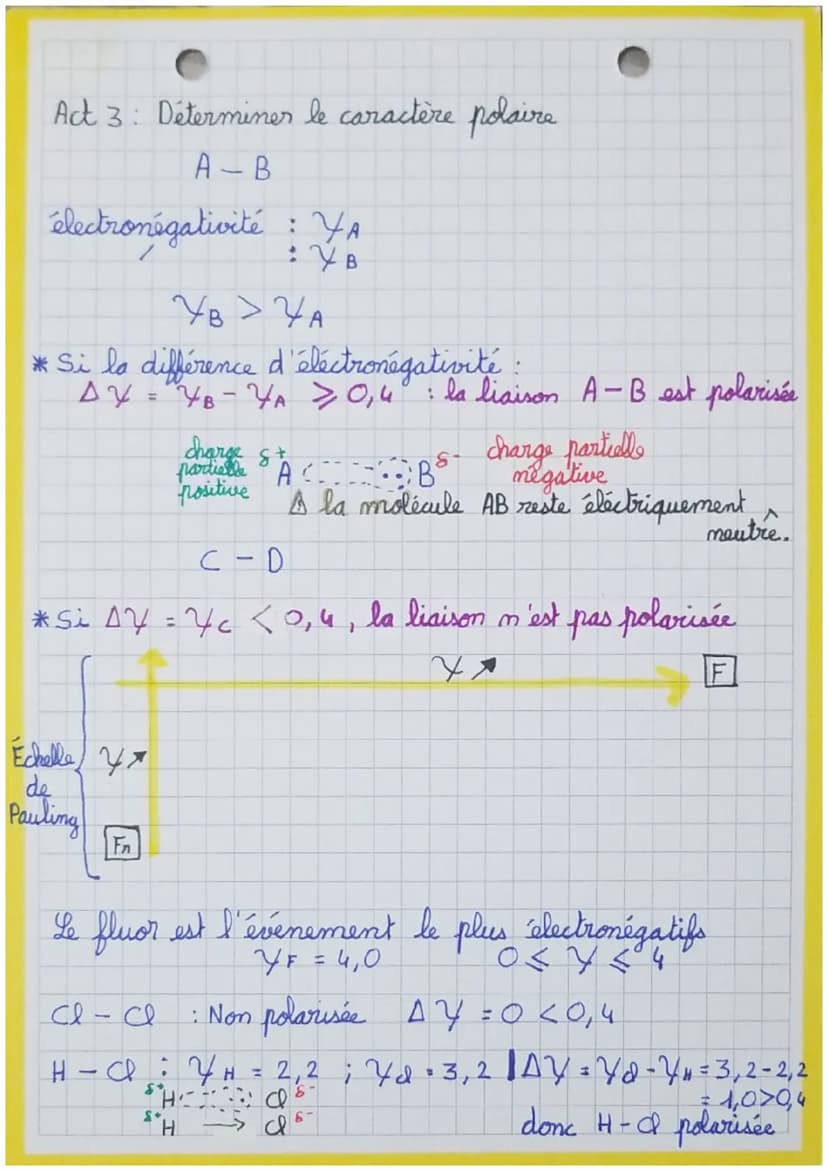 Act 3 : Déterminer le caractère polaire
A – B
électronégativité : χA
: χB
χB > χA
* Si la différence d'éléctronégativité :
Δχ = χB - χA ⩾ 0,4 : la liaison A – B est polarisée
charge partielle positive δ+ A B δ- charge partielle négative
⚠ la molécule AB reste éléctriquement neutre.
C – D
* Si Δχ = χC < 0,4, la liaison n'est pas polarisée
χ ↗ F
Échelle de Pauling χ ↗
Fn
Le fluor est l'événement le plus électronégatifs
χF = 4,0 0 ⩽ χ ⩽ 4
Cl – Cl : Non polarisée Δχ = 0 < 0,4
H – Cl : χH = 2,2 ; χCl = 3,2 | Δχ = χCl - χH = 3,2 - 2,2
= 1,0 > 0,4
δ+ H Cl δ-
δ+ H → Cl δ- donc H – Cl polarisée